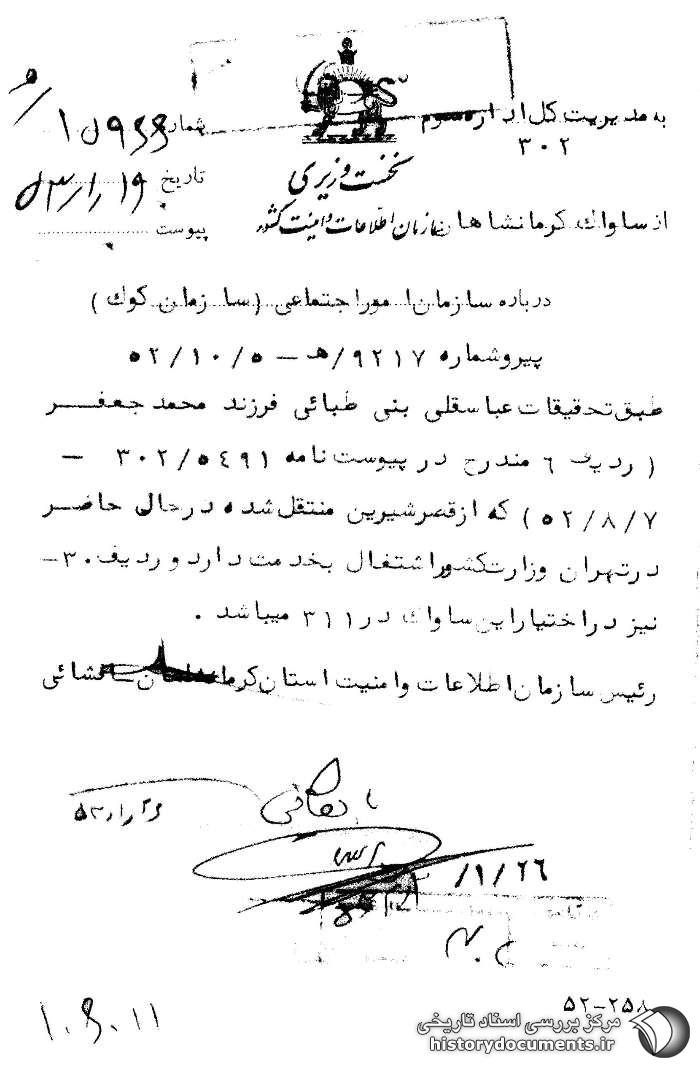 به مدیریت کل اداره سوم
۳۰۲
شماره
نخست وزیری
تاریخ ۵۳/۱/۱۹
از ساواک کرمانشاهان
سازمان اطلاعات و امنیت کشور
پیوست
درباره سازمان امور اجتماعی (سازمان کوک)
پیرو شماره ۹۲۱۷/هـ – ۵۲/۱۰/۵
طبق تحقیقات عباسقلی بنی طبائی فرزند محمد جعفر
( ردیف ۶ مندرج در پیوست نامه ۳۰۲/۵۴۹۱ –
۵۲/۸/۷) که از قصرشیرین منتقل شده در حال حاضر
در تهران وزارت کشور اشتغال بخدمت دارد و ردیف ۳۰–
نیز در اختیار این ساواک در ۳۱۱ میباشد .
رئیس سازمان اطلاعات و امنیت استان کرمانشاهان
۱/۲۶/
۵۲-۲۵۸
مرکز بررسی اسناد تاریخی
historydocuments.ir